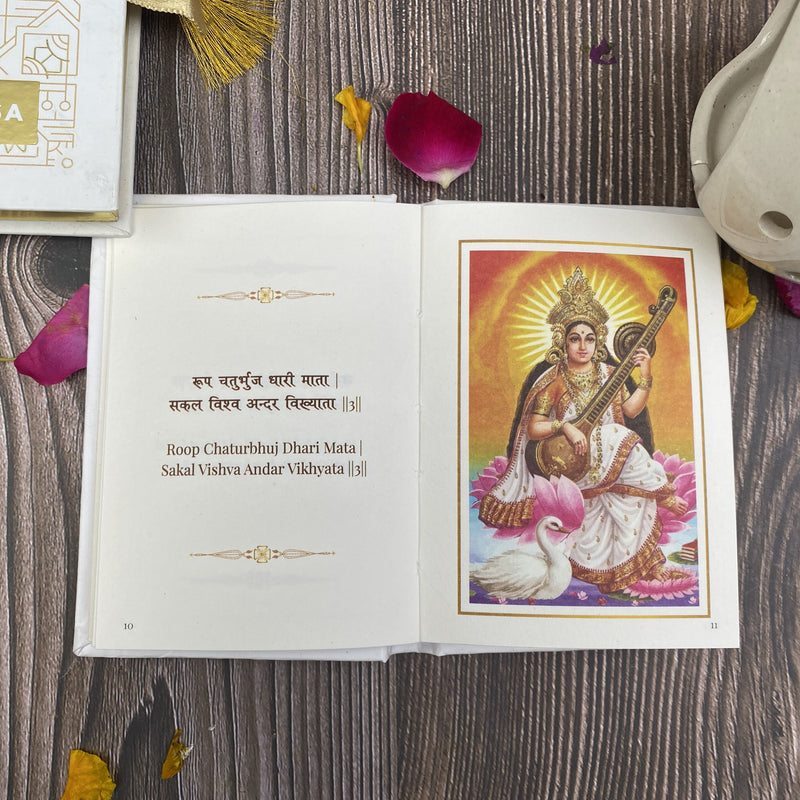 रूप चतुर्भुज धारी माता |
सकल विश्व अन्दर विख्याता ||३||
Roop Chaturbhuj Dhari Mata |
Sakal Vishva Andar Vikhyata ||3||
10
11